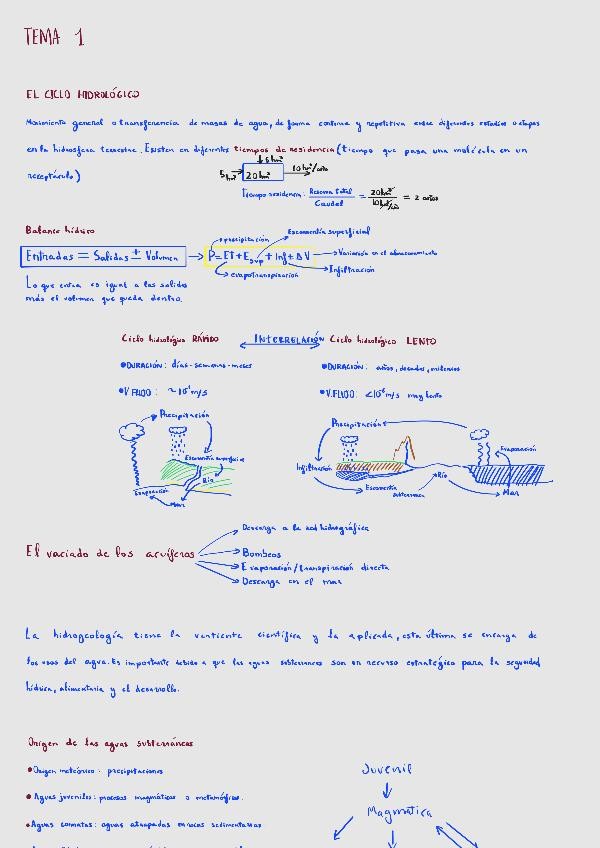 TEMA 1
EL CICLO HIDROLÓGICO
Movimiento general o transferencia de masas de agua, de forma continua y repetitiva entre diferentes estadios o etapas
en la hidrosfera terrestre. Existen en diferentes tiempos de residencia (tiempo que pasa una molécula en un
receptáculo)
5 hm³
5 hm³ 20 hm³ 10 hm³/año
Tiempo residencia: Reserva total / Caudal = 20 hm³ / 10 hm³/año = 2 años
Balance hídrico
precipitación Escorrentía superficial
Entradas = Salidas ± Volumen → P = ET + Esup + Inf ± ΔV Variación en el almacenamiento
evapotranspiración Infiltración
Lo que entra es igual a las salidas
más el volumen que queda dentro.
Ciclo hidrológico RÁPIDO INTERRELACIÓN Ciclo hidrológico LENTO
• DURACIÓN: días - semanas - meses • DURACIÓN: años, decadas, milenios
• V. FLUJO: m/s • V. FLUJO: m/s muy lento
Precipitación Precipitación
Escorrentía superficial Evaporación
Río Infiltración Río
Evaporación Mar Escorrentía subterránea Mar
El vaciado de los acuíferos
Descarga a la red hidrográfica
Bombeos
Evaporación/transpiración directa
Descarga en el mar
La hidrogeología tiene la vertiente científica y la aplicada, esta última se encarga de
los usos del agua. Es importante debido a que las aguas subterráneas son un recurso estratégico para la seguridad
hídrica, alimentaria y el desarrollo.
Origen de las aguas subterráneas
• Origen meteórico: precipitaciones Juvenil
• Aguas juveniles: procesos magmáticos o metamórficos. Magmática
• Aguas connatas: aguas atrapadas en rocas sedimentarias